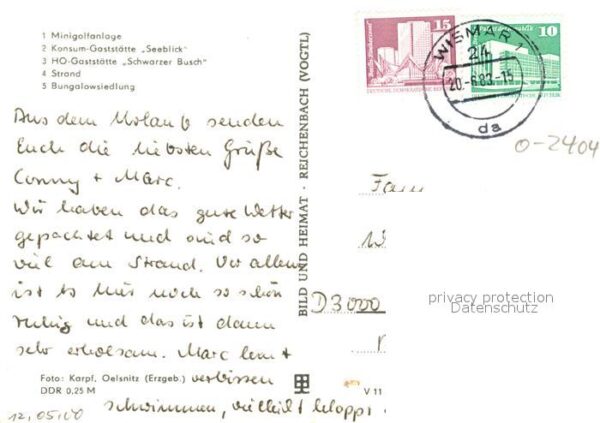 1 Minigolfanlage
2 Konsum-Gaststätte „Seeblick"
3 HO-Gaststätte „Schwarzer Busch"
4 Strand
5 Bungalowsiedlung
Aus dem Urlaub senden
Euch die liebsten Grüße
Conny + Marc.
Wir haben das gute Wetter
gepachtet und sind so
viel am Strand. Vor allem
ist es hier noch so schön
ruhig und das ist dann
sehr erholsam. Marc lernt
verbissen
schwimmen, vielleicht kloppt
Foto: Karpf, Oelsnitz (Erzgeb.)
DDR 0,25 M
V 11
12,05,00
BILD UND HEIMAT · REICHENBACH (VOGTL)
15
10
WISMAR 1
24
20.-6.83.-15
da
0-2404
Fam
D3000
privacy protection
Datenschutz